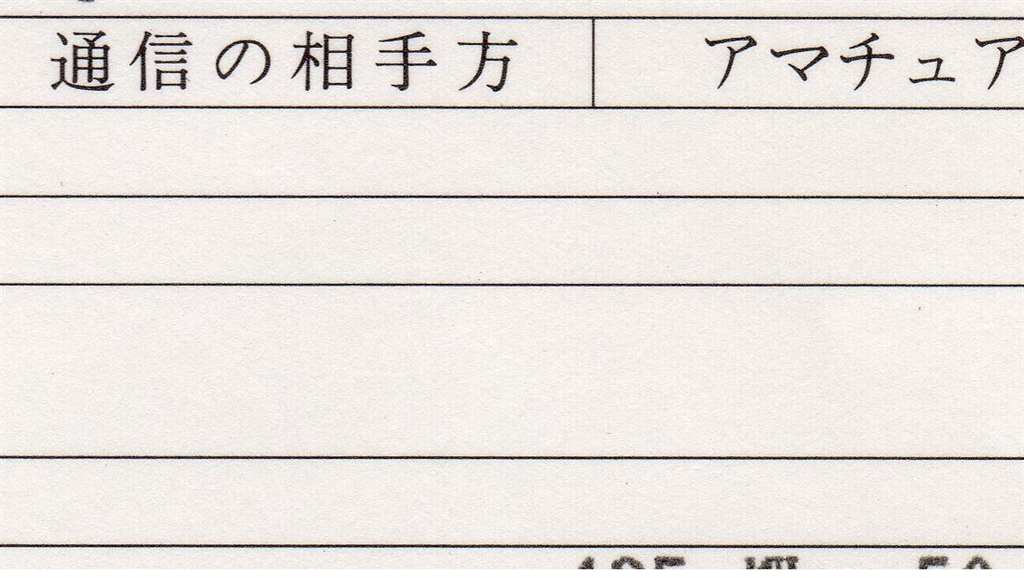 通信の相手方 アマチュア